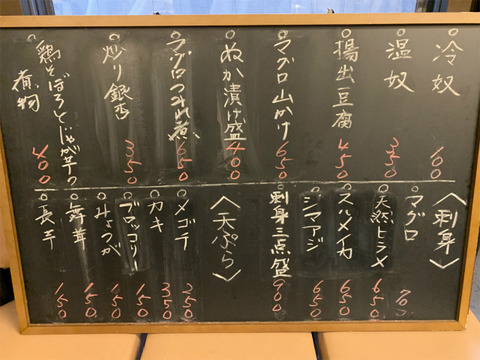 ○冷奴
○温奴 350
○揚出豆腐 450
○マグロ山かけ 650
○ぬか漬け盛 400
○マグロつみれ煮 650
○炒り銀杏 350
○鶏そぼろとじゃが芋の
煮物 400
〈刺身〉
○マグロ
○天然ヒラメ 650
○スルメイカ 650
○シマアジ 650
○刺身三点盛 900
〈天ぷら〉
○メゴチ 250
○カキ 350
○ブロッコリー 150
○みょうが 150
○舞茸 150
○長芋 150